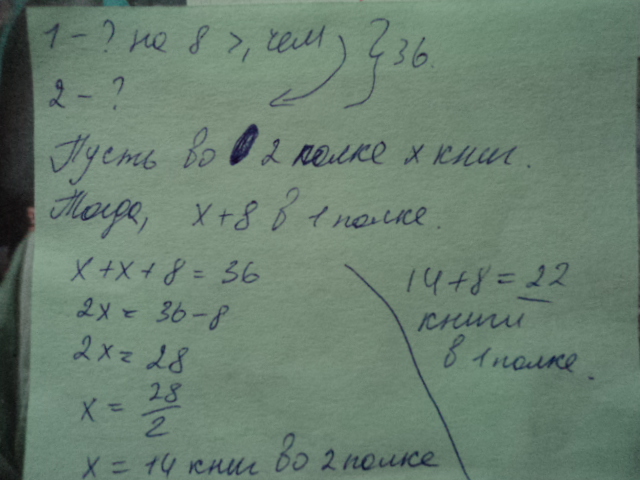 1 - ? на 8 >, чем
2 - ?
} 36.
Пусть во 2 полке x книг.
Тогда, x+8 в 1 полке.
x + x + 8 = 36
2x = 36-8
2x = 28
x = 28/2
x = 14 книг во 2 полке
14+8 = 22
книги
в 1 полке.